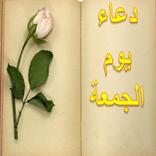 دعاء
يوم
الجمعة